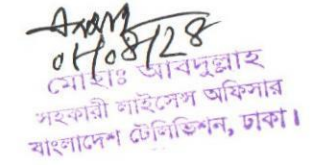 01/08/28
মোহাঃ আবদুল্লাহ
সহকারী লাইসেন্স অফিসার
বাংলাদেশ টেলিভিশন, ঢাকা।